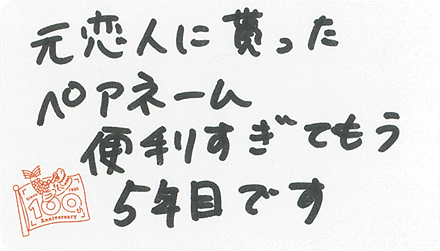 元恋人に貰った
ペアネーム
便利すぎてもう
5年目です
100th
Anniversary